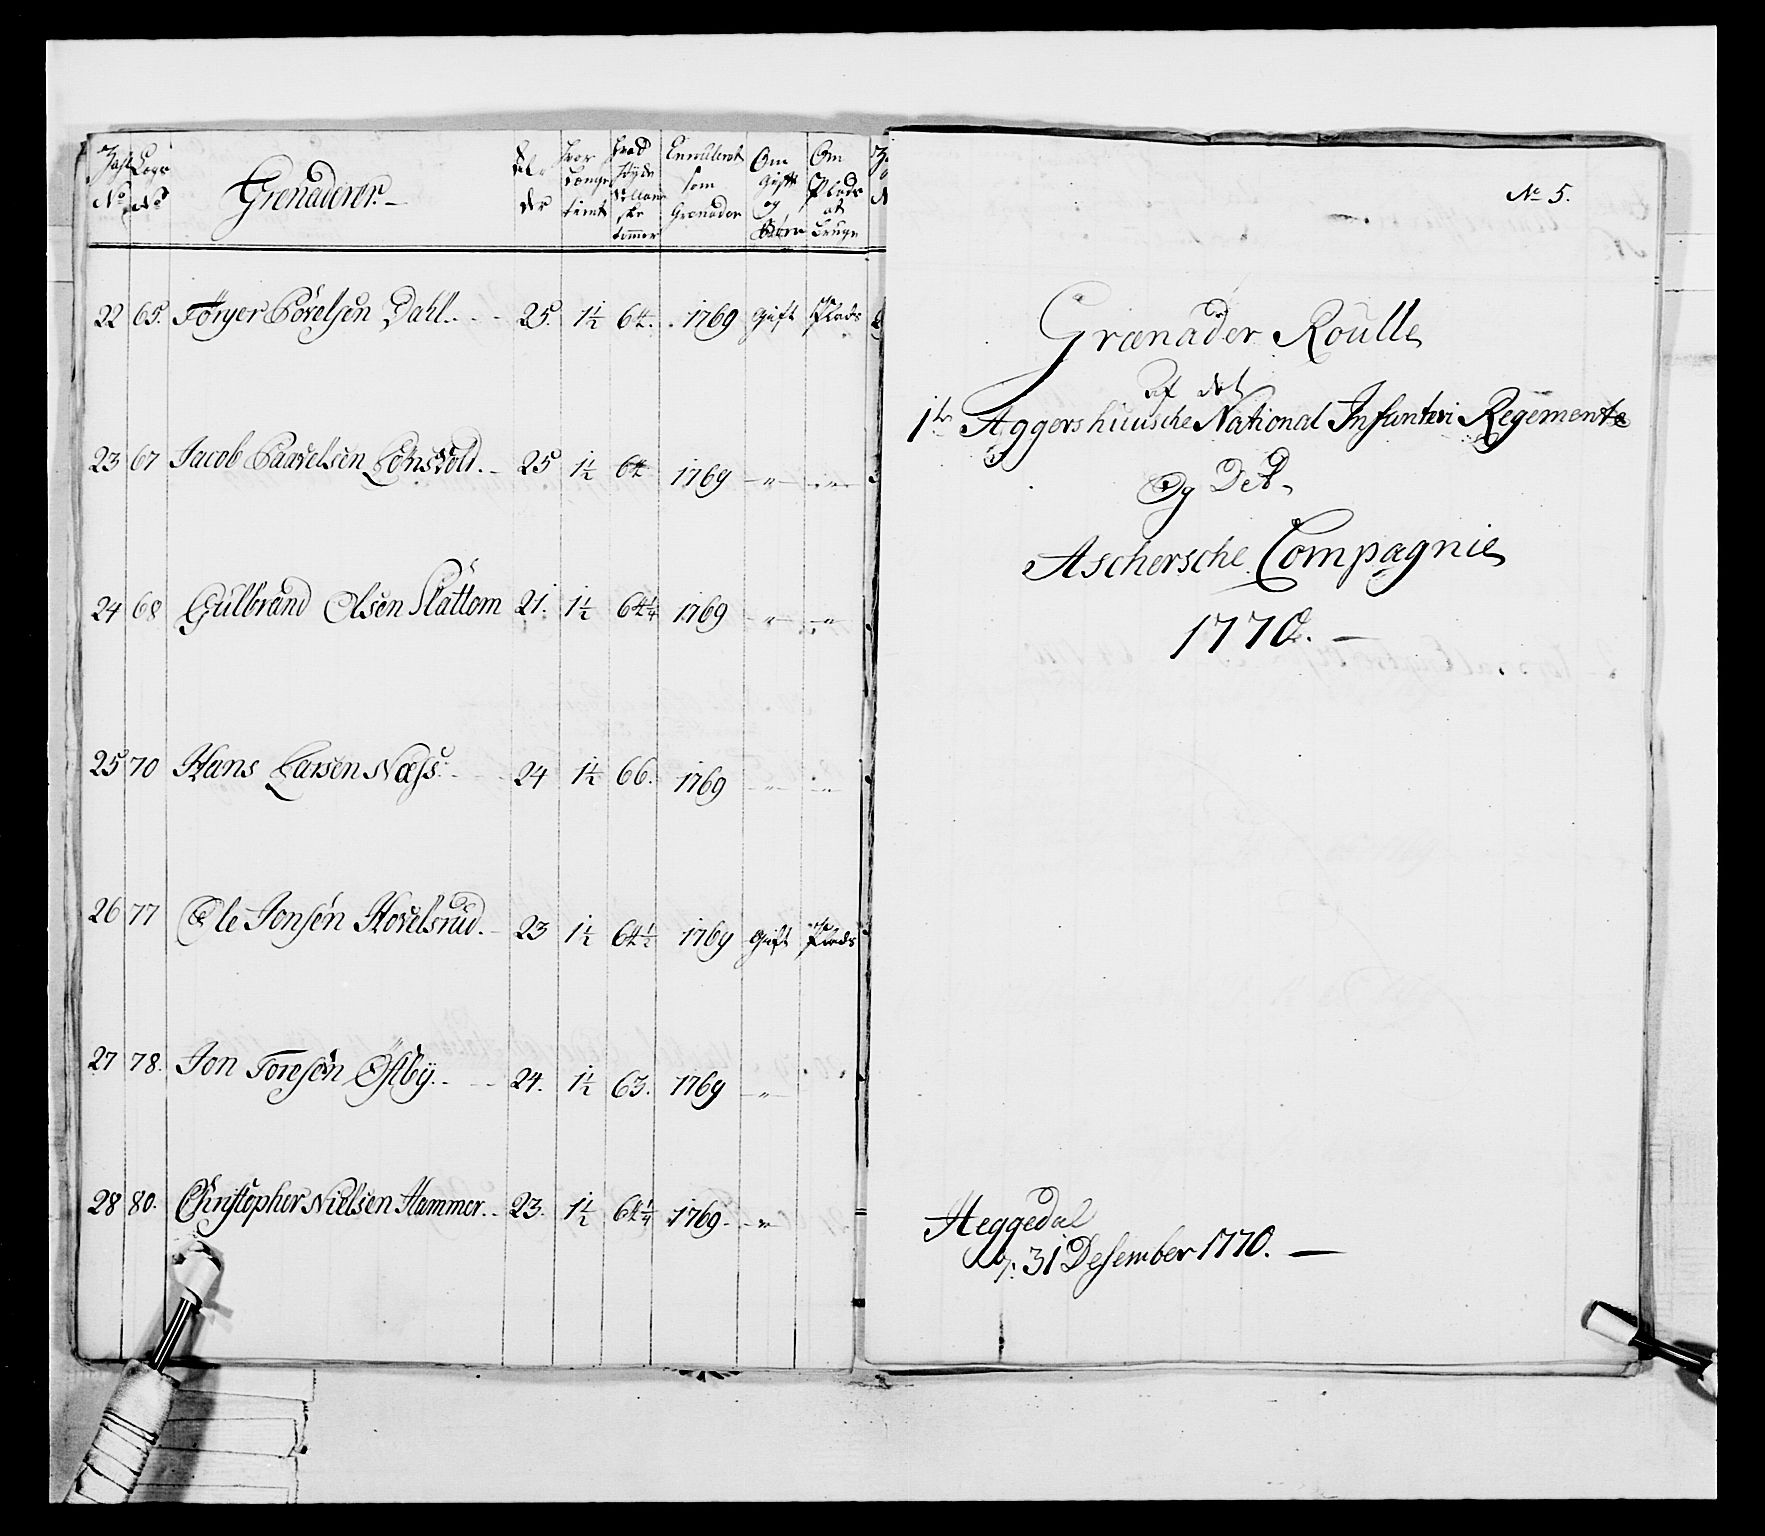 No No Grenaderer.
som Grenader
Om Gift og Børn
Om Plads at bruge
22 65. Törger Povelsen Dahl. 25. 1½ 64. 1769 Gift Plads
23 67 Jacob Paavelsen 25 1½ 64 1769 " "
24 68 Gulbrand Olsen Slattom 21. 1½ 64¼ 1769 " "
25 70 Hans Larsen Næss. 24 1½ 66. 1769 " "
26 77 Ole Jonsen Hovelsrud. 23 1½ 64½ 1769 Gift Plads
27 78. Jon Toresön Östby. 24. 1½ 63. 1769 "
28 80. Christopher Nielsen Hammer. 23. 1½ 64¼ 1769. "
No 5.
Grænadeer Roulle
Af det
1te Aggershuusche National Infanteri Regemente
Og Det
Aschersche Compagnie
1770.
Heggedal
31 Desember 1770.